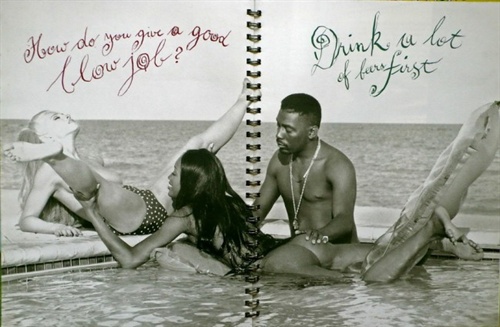 How do you give a good
blow job?
Drink a lot
of bars first